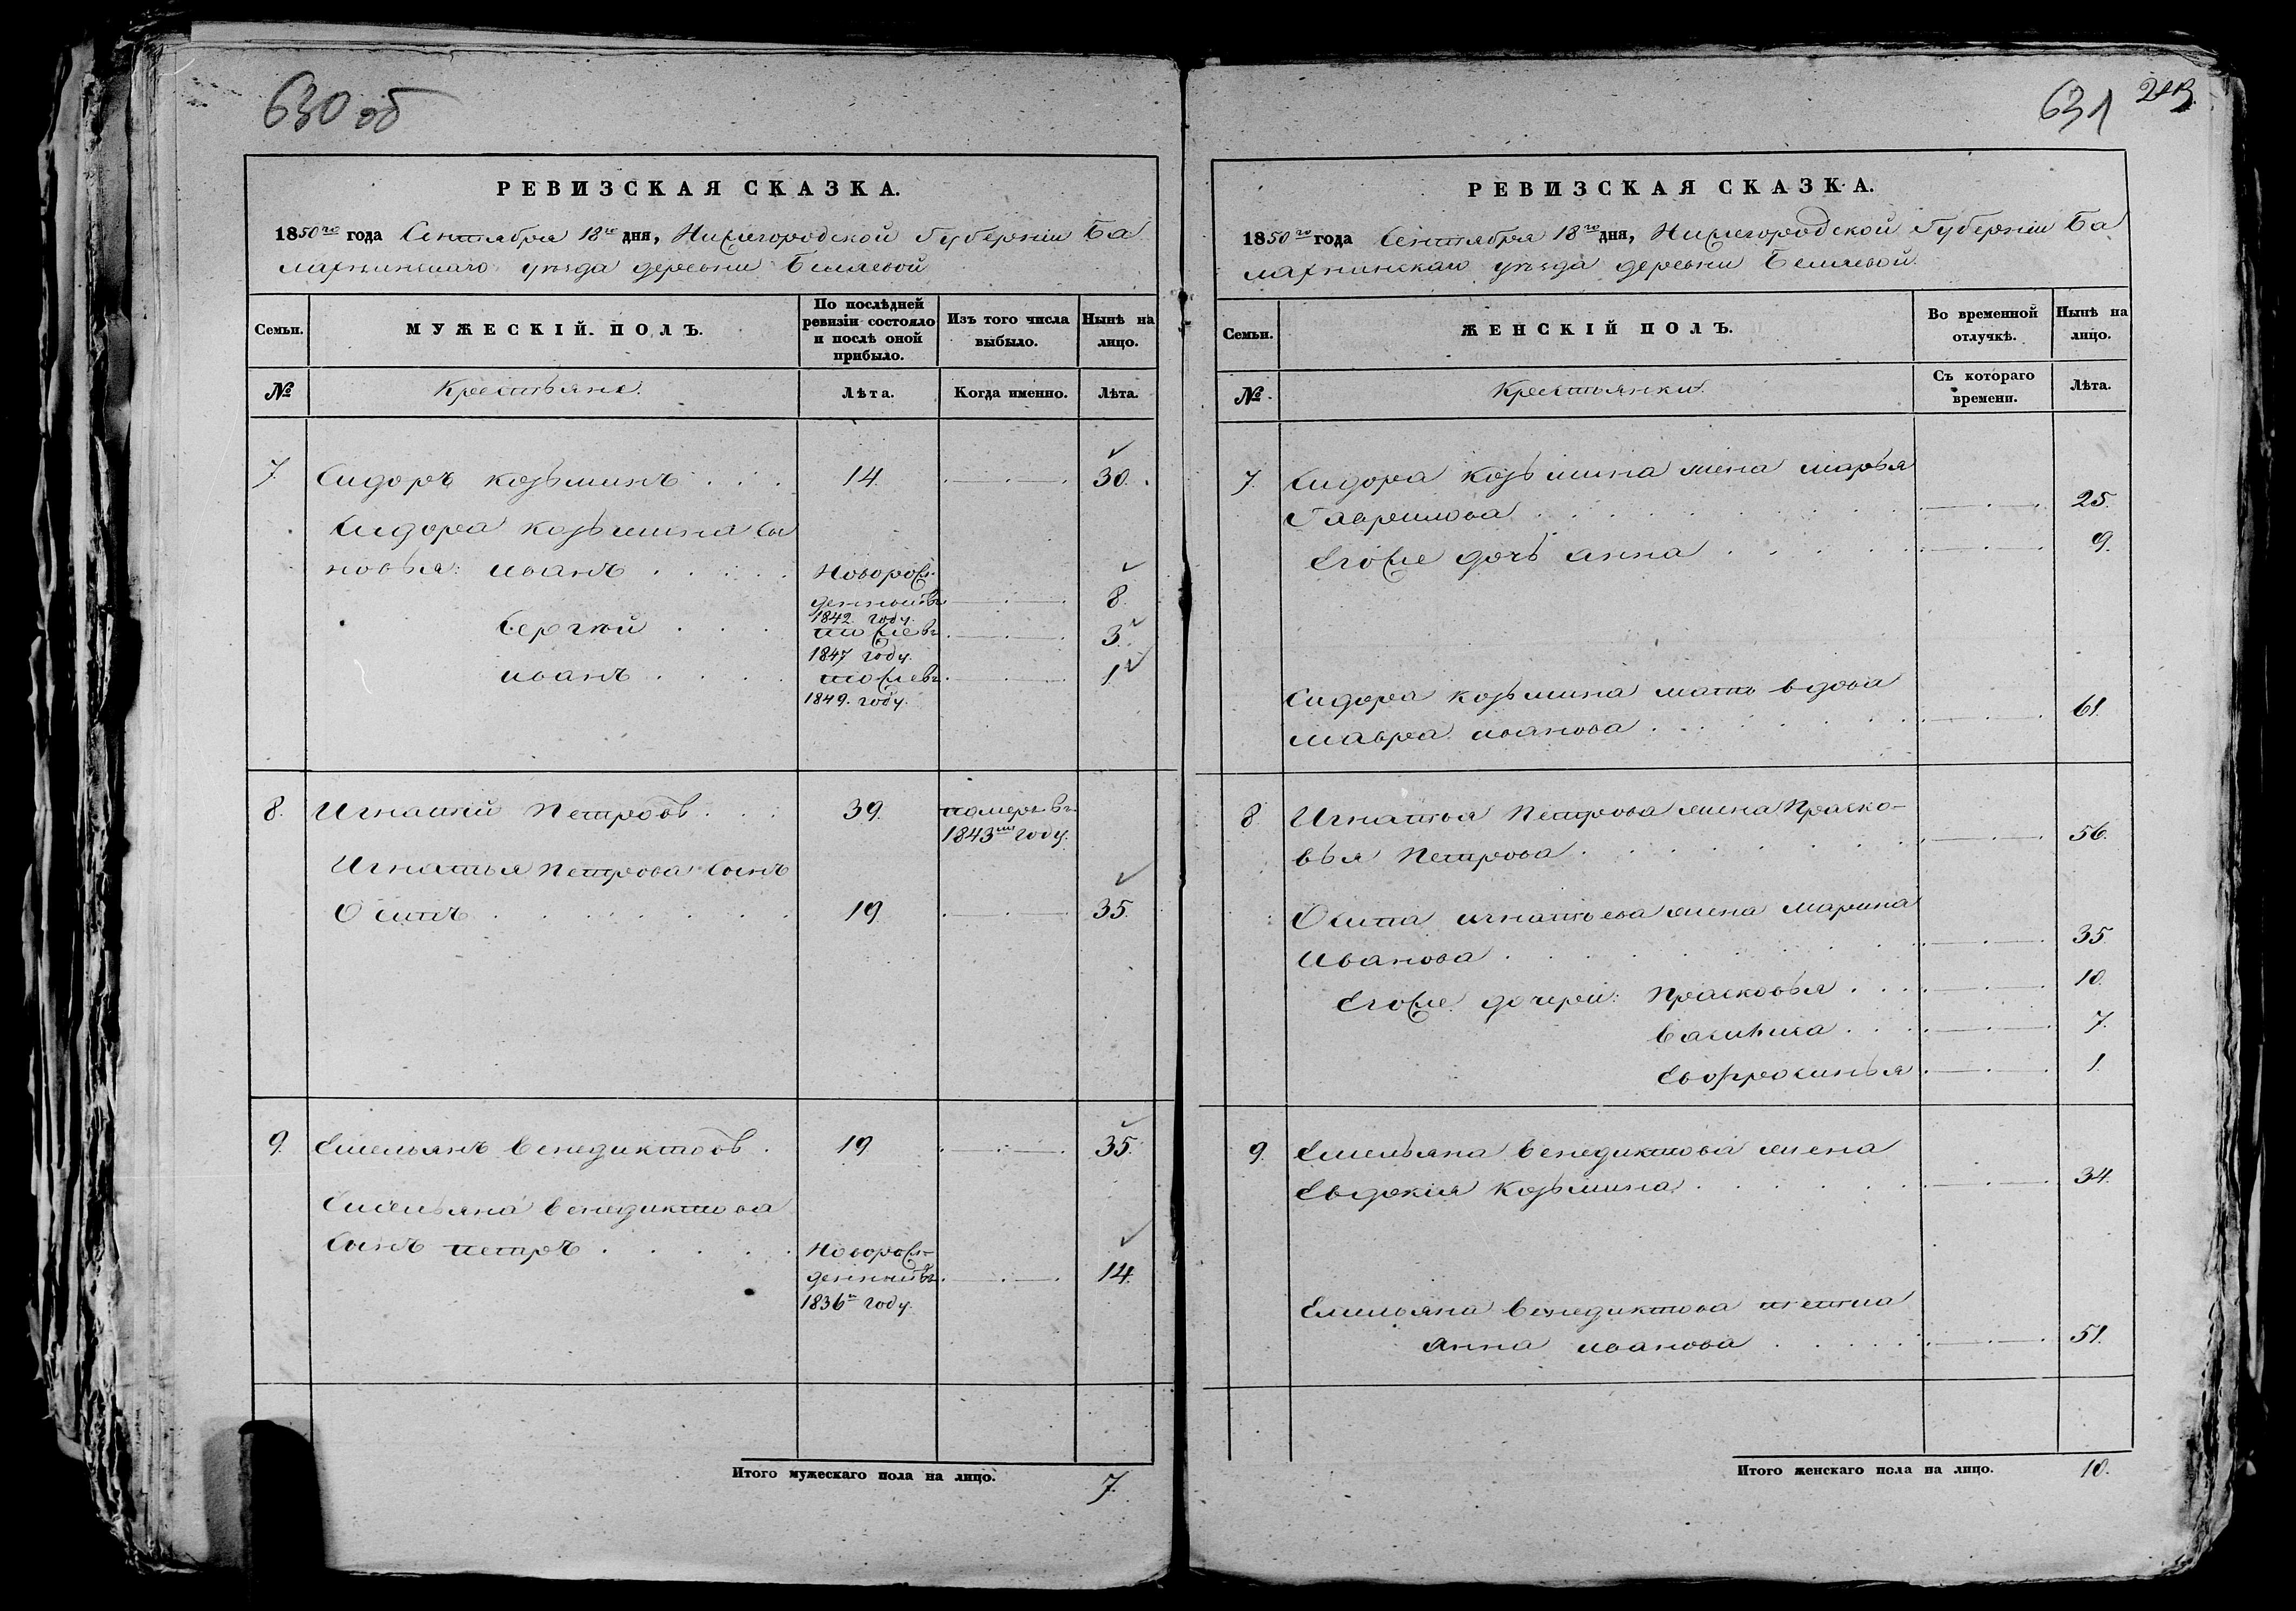 630 об
РЕВИЗСКАЯ СКАЗКА.
1850го года Сентября 18го дня, Нижегородской Губерніи Ба
лахнинскаго уѣзда деревни Беляевой
Семьи.
МУЖЕСКІЙ ПОЛЪ.
По послѣдней ревизіи состояло и послѣ оной прибыло.
Изъ того числа выбыло.
Нынѣ на лицо.
№
Крестьяне.
Лѣта.
Когда именно.
Лѣта.
7. Сидоръ Козьминъ 14. 30.
Сидора Козьмина сы
новья: иванъ Новорож-
денный въ 8.
1842 году.
Сергѣй тоже въ 3.
1847 году.
иванъ тоже въ 1
1849. году.
8. Игнатий Петровъ 39. померъ въ
1843мъ году.
Игнатья Петрова Сынъ
Осипъ 19. 35.
9. Емельянъ Венедиктовъ 19 35.
Емельяна Венедиктова
Сынъ петръ Новорож-
денный въ 14.
1836м году.
Итого мужескаго пола на лицо. 7.
631
РЕВИЗСКАЯ СКАЗКА.
1850го года Сентября 18го дня, Нижегородской Губерніи Ба
лахнинскаго уѣзда деревни Беляевой.
Семьи.
ЖЕНСКІЙ ПОЛЪ.
Во временной отлучкѣ.
Нынѣ на лицо.
№.
Крестьянки.
Съ котораго времени.
Лѣта.
7. Сидора Козьмина жена марья
Гаврилова 25.
Егоже дочь анна 9.
Сидора Козьмина мать вдова
мавра иванова 61.
8. Игнатья Петрова жена Праско-
вья Петрова 56.
Осипа игнатьева жена марина
Иванова 35.
Егоже дочери: Прасковья 10.
Василиса 7.
Евфросинья 1.
9. Емельяна Венедиктова жена
Евдокия Козьмина 34.
Емельяна Венедиктова тетка
Анна иванова 51.
Итого женскаго пола на лицо. 10.